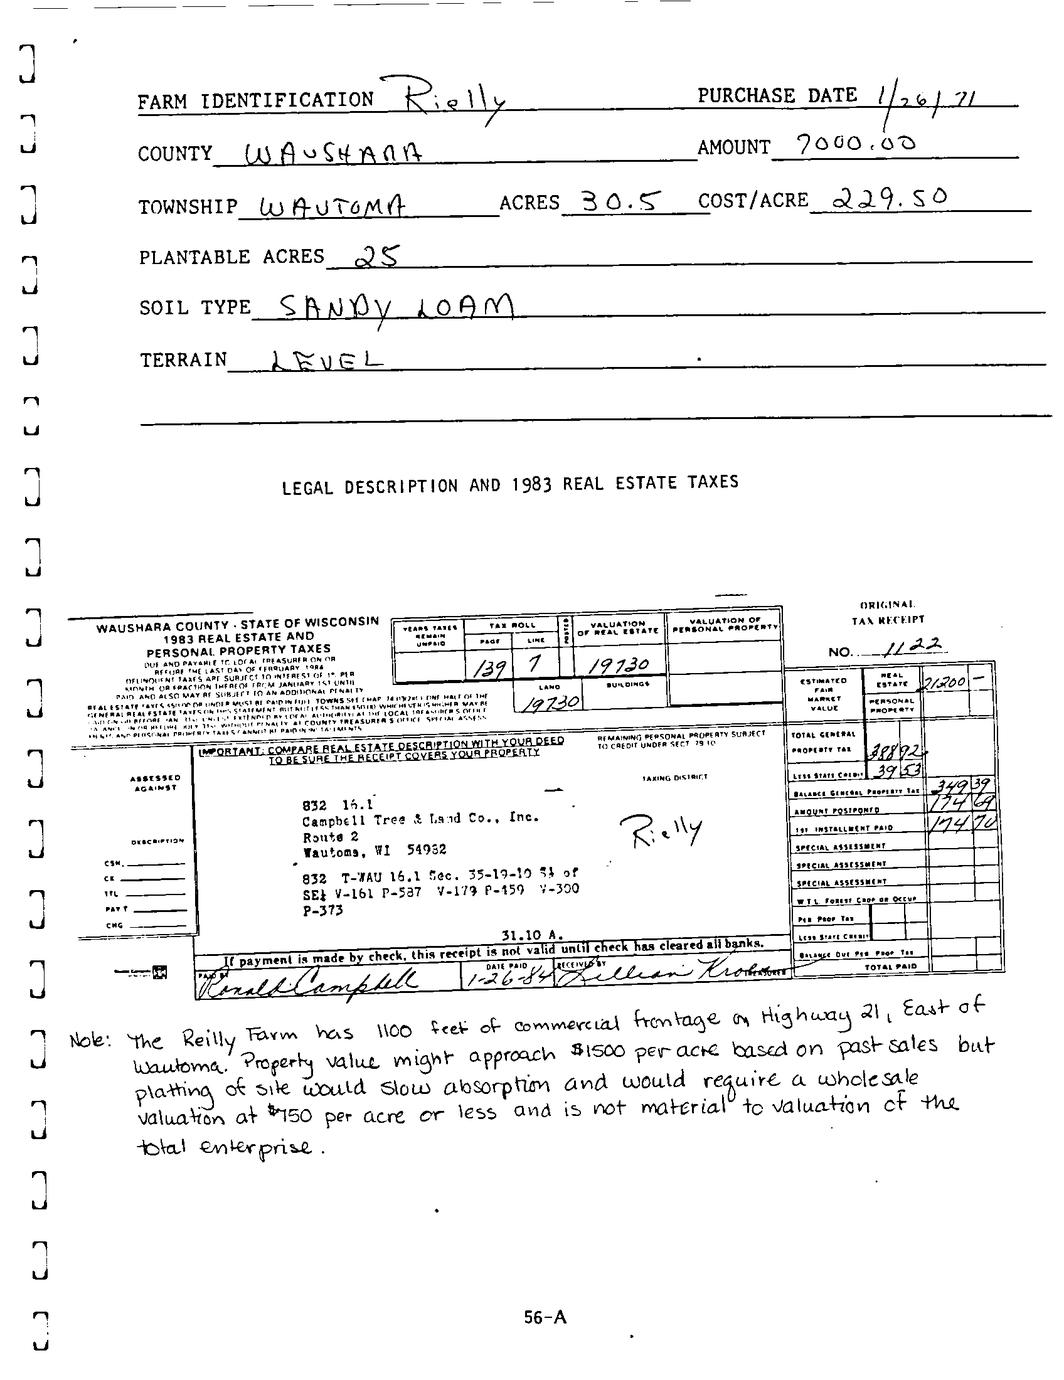 FARM IDENTIFICATION Rielly PURCHASE DATE 1/26/71
COUNTY WAUSHARA AMOUNT 7000.00
TOWNSHIP WAUTOMA ACRES 30.5 COST/ACRE 229.50
PLANTABLE ACRES 25
SOIL TYPE SANDY LOAM
TERRAIN LEVEL
LEGAL DESCRIPTION AND 1983 REAL ESTATE TAXES
ORIGINAL
TAX RECEIPT
NO. 1122
WAUSHARA COUNTY - STATE OF WISCONSIN
1983 REAL ESTATE AND
PERSONAL PROPERTY TAXES
DUE AND PAYABLE TO LOCAL TREASURER ON OR
BEFORE THE LAST DAY OF FEBRUARY 1984
DELINQUENT TAXES ARE SUBJECT TO INTEREST OF 1% PER
MONTH OR FRACTION THEREOF FROM JANUARY 1ST UNTIL
PAID AND ALSO MAY BE SUBJECT TO AN ADDITIONAL PENALTY
YEARS TAXES
REMAIN
UNPAID
TAX ROLL
PAGE LINE
139 7
POSTED
VALUATION
OF REAL ESTATE
19730
VALUATION OF
PERSONAL PROPERTY
LAND
19730
BUILDINGS
ESTIMATED
FAIR
MARKET
VALUE
REAL
ESTATE 21200 —
PERSONAL
PROPERTY
IMPORTANT: COMPARE REAL ESTATE DESCRIPTION WITH YOUR DEED
TO BE SURE THE RECEIPT COVERS YOUR PROPERTY
REMAINING PERSONAL PROPERTY SUBJECT
TO CREDIT UNDER SECT 79.10
TOTAL GENERAL
PROPERTY TAX 388 92
LESS STATE CREDIT 39 53
BALANCE GENERAL PROPERTY TAX 349 39
AMOUNT POSTPONED 174 69
1ST INSTALLMENT PAID 174 70
SPECIAL ASSESSMENT
SPECIAL ASSESSMENT
SPECIAL ASSESSMENT
W.T.L. FOREST CROP OR OCCUP
PER PROP TAX
LESS STATE CREDIT
BALANCE DUE PER PROP TAX
TOTAL PAID
ASSESSED
AGAINST
TAXING DISTRICT
832 16.1
Campbell Tree & Land Co., Inc.
Route 2
Wautoma, WI 54982
Rielly
DESCRIPTION
CSH.
CK
TTL
PAY'T
CHG
832 T-WAU 16.1 Sec. 35-19-10 S½ of
SE¼ V-161 P-587 V-179 P-459 V-300
P-373
31.10 A.
If payment is made by check, this receipt is not valid until check has cleared all banks.
PAID BY Ronald Campbell DATE PAID 1-26-84 RECEIVED BY Lillian
Note: The Reilly Farm has 1100 feet of commercial frontage on Highway 21, East of
Wautoma. Property value might approach $1500 per acre based on past sales but
platting of site would slow absorption and would require a wholesale
valuation at $750 per acre or less and is not material to valuation of the
total enterprise.
56-A